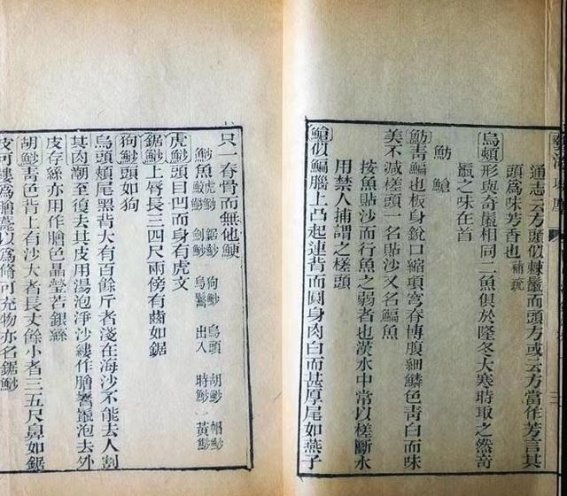 通志云方頭似棘鬣而頭方或云方當作芳言其
頭爲味芳香也補疏
烏頰形與奇鬣相同二魚俱於隆冬大寒時取之然奇
鬣之味在首
魴 鯧
魴青鯿也板身銳口縮項穹脊博腹細鱗色青白而味
美不減槎頭一名貼沙又名鯿魚
按魚貼沙而行魚之弱者也淡水中當以槎斷水
用禁人捕謂之槎頭
鯧似鯿腦上凸起連背而圓身肉白而甚厚尾如燕子
只一脊骨而無他鯁
魦魚 虎魦 鋸魦 狗魦 烏頭 胡魦
劍魦 烏鬐 出入 時魦 黃魦
虎魦頭目凹而身有虎文
鋸魦上唇長三四尺兩傍有齒如鋸
狗魦頭如狗
烏頭頰尾黑背大有百餘斤者淺在海沙不能去人割
其肉潮至復去其皮用湯泡淨沙縷作膾鬐鬣泡去外
皮存絲亦用作膾色晶瑩若銀絲
胡魦青色背上有沙大者長丈餘小者三五尺鼻如鋸
皮可縷爲膾薨以爲脩可充物亦名鋸魦